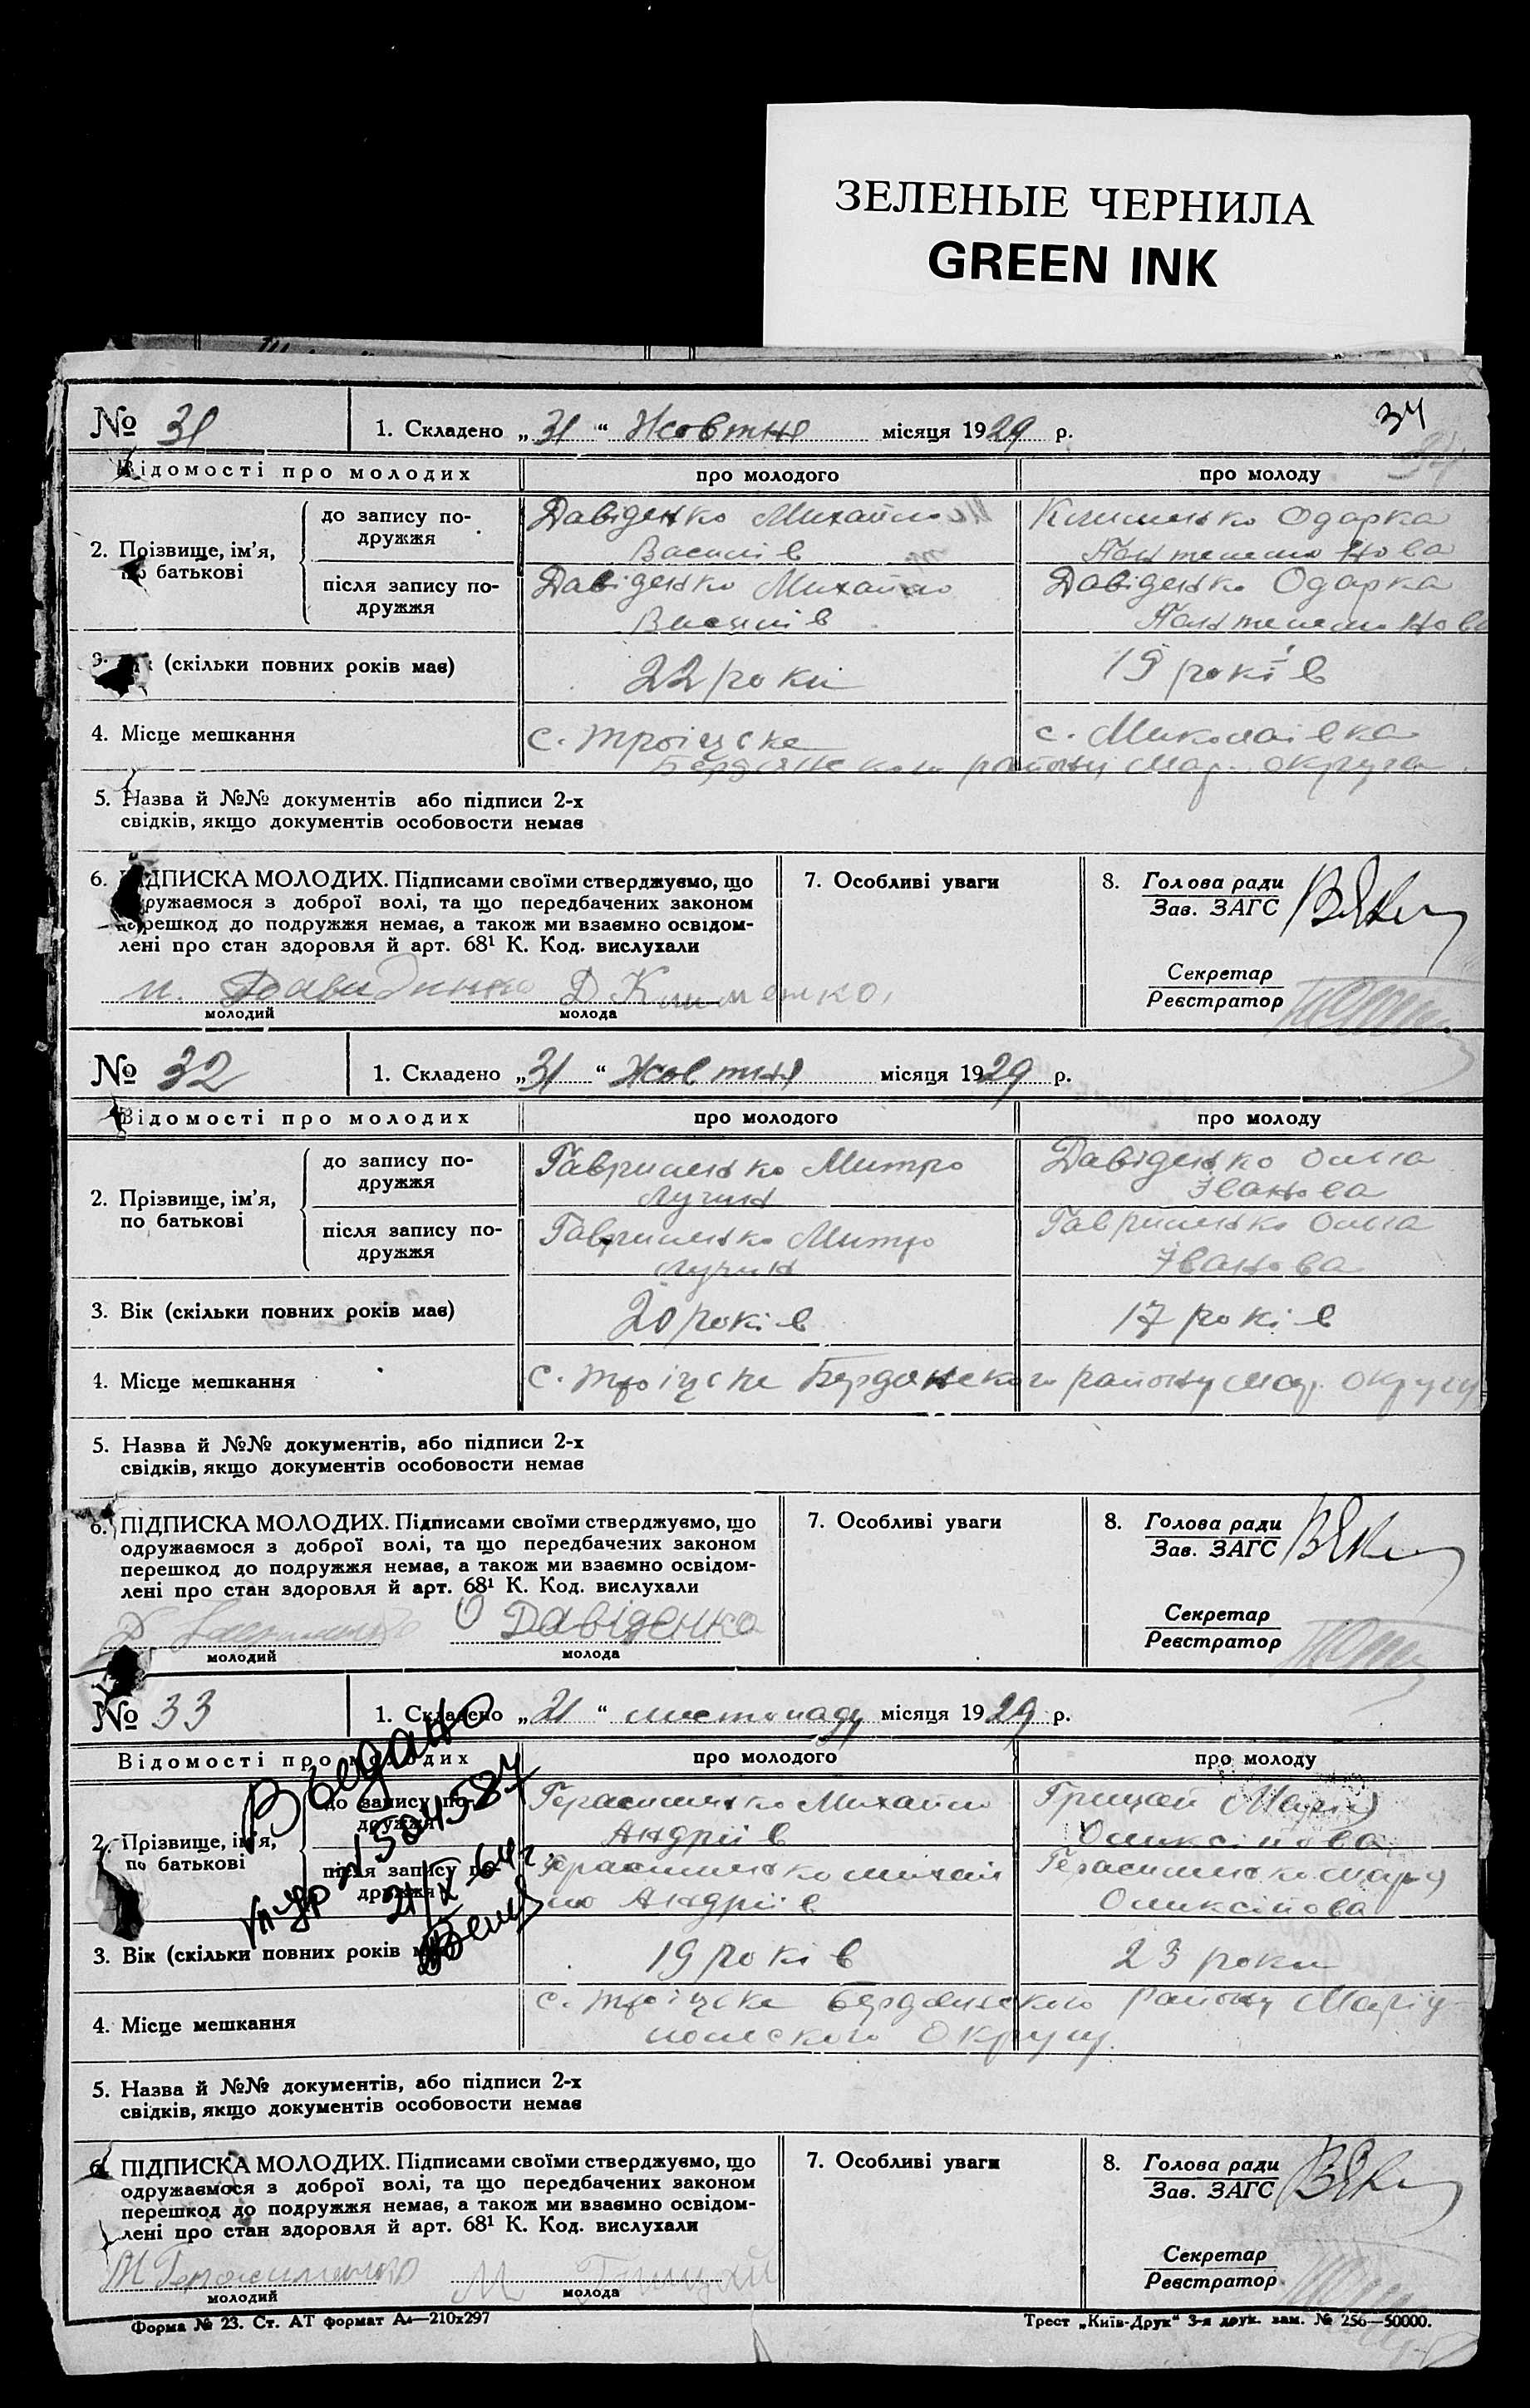 ЗЕЛЕНЫЕ ЧЕРНИЛА
GREEN INK
34
№ 31
1. Складено „31“ Жовтня місяця 1929 р.
Відомості про молодих
про молодого
про молоду
2. Прізвище, ім'я, по батькові
до запису по-
дружжя
Давіденко Михайло
Василів
Клименько Одарка
Пантелемонова
після запису по-
дружжя
Давіденько Михайло
Василів
Давіденько Одарка
Пантелемонова
3. Вік (скільки повних років має)
22 роки
19 років
4. Місце мешкання
с. Троіцьке
с. Миколаівка
Бердянського району Мар. округи
5. Назва й №№ документів або підписи 2-х
свідків, якщо документів особовости немає
6. ПІДПИСКА МОЛОДИХ. Підписами своїми стверджуємо, що
одружаємося з доброї волі, та що передбачених законом
перешкод до подружжя немає, а також ми взаємно освідом-
лені про стан здоровля й арт. 68¹ К. Код. вислухали
м. Давиденко Д Клименко
молодий
молода
7. Особливі уваги
8. Голова ради
Зав. ЗАГС
Секретар
Реєстратор
№ 32
1. Складено „31“ Жовтня місяця 1929 р.
Відомості про молодих
про молодого
про молоду
2. Прізвище, ім'я,
по батькові
до запису по-
дружжя
Гавриленько Митро
Лукин
Давіденько Олна
Іванова
після запису по-
дружжя
Гавриленько Митро
Лукин
Гавриленько Олна
Іванова
3. Вік (скільки повних років має)
20 років
17 років
4. Місце мешкання
с. Троіцьке Бердянського району Мар. округу
5. Назва й №№ документів, або підписи 2-х
свідків, якщо документів особовости немає
6. ПІДПИСКА МОЛОДИХ. Підписами своїми стверджуємо, що
одружаємося з доброї волі, та що передбачених законом
перешкод до подружжя немає, а також ми взаємно освідом-
лені про стан здоровля й арт. 68¹ К. Код. вислухали
О Давіденко
молодий
молода
7. Особливі уваги
8. Голова ради
Зав. ЗАГС
Секретар
Реєстратор
№ 33
1. Складено „21“ листопаду місяця 1929 р.
Відомості про молодих
про молодого
про молоду
2. Прізвище, ім'я,
по батькові
до запису по-
дружжя
Герасименько Михайло
Андріів
Грицай Марія
Оликсіівова
після запису по-
дружжя
Герасименько Михай
ло Андріів
Герасименько Марія
Оликсійова
21/X-64 г.
3. Вік (скільки повних років має)
19 років
23 роки
4. Місце мешкання
с. Троіцьке Бердянського району Маріу-
польского округу.
5. Назва й №№ документів, або підписи 2-х
свідків, якщо документів особовости немає
6. ПІДПИСКА МОЛОДИХ. Підписами своїми стверджуємо, що
одружаємося з доброї волі, та що передбачених законом
перешкод до подружжя немає, а також ми взаємно освідом-
лені про стан здоровля й арт. 68¹ К. Код. вислухали
М Герасименко М Грицай
молодий
молода
7. Особливі уваги
8. Голова ради
Зав. ЗАГС
Секретар
Реєстратор
Форма № 23. Ст. АТ формат А₄—210х297
Трест „Київ-Друк“ 3-я друк. зам. № 256—50000.